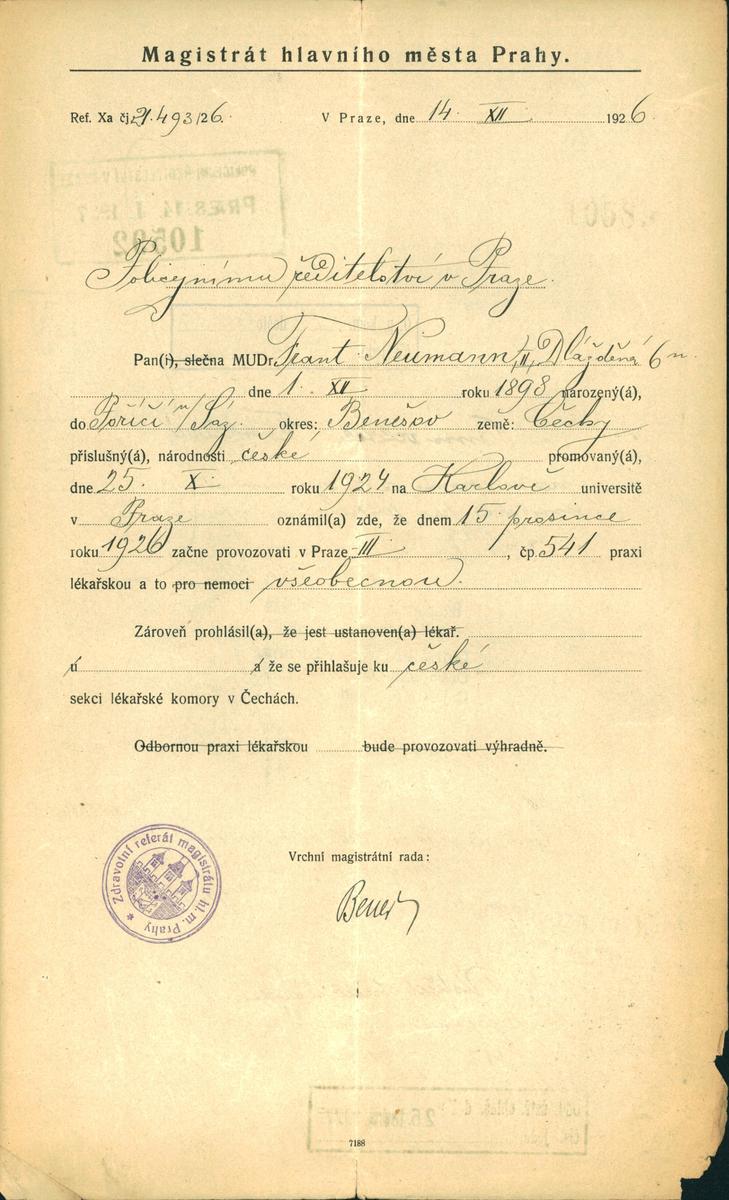 Magistrát hlavního města Prahy.
Ref. Xa čj. 21.493/26. V Praze, dne 14. XII 1926
PRÆS. 14. I. 1927
10592
1058
Policejnímu ředitelství v Praze.
Pan(í), slečna MUDr. Frant. Neumann, II, Dlážděná 6 n.
dne 1. XII roku 1898 narozený(á),
do Poříčí n/Sáz. okres: Benešov země: Čechy
příslušný(á), národnosti české promovaný(á),
dne 25. X. roku 1924 na Karlově universitě
v Praze oznámil(a) zde, že dnem 15. prosince
roku 1926 začne provozovati v Praze III , čp. 541 praxi
lékařskou a to pro nemoci všeobecnou.
Zároveň prohlásil(a), že jest ustanoven(a) lékař.
ú a že se přihlašuje ku české
sekci lékařské komory v Čechách.
Odbornou praxi lékařskou bude provozovati výhradně.
Vrchní magistrátní rada:
Zdravotní referát magistrátu hl. m. Prahy
7188